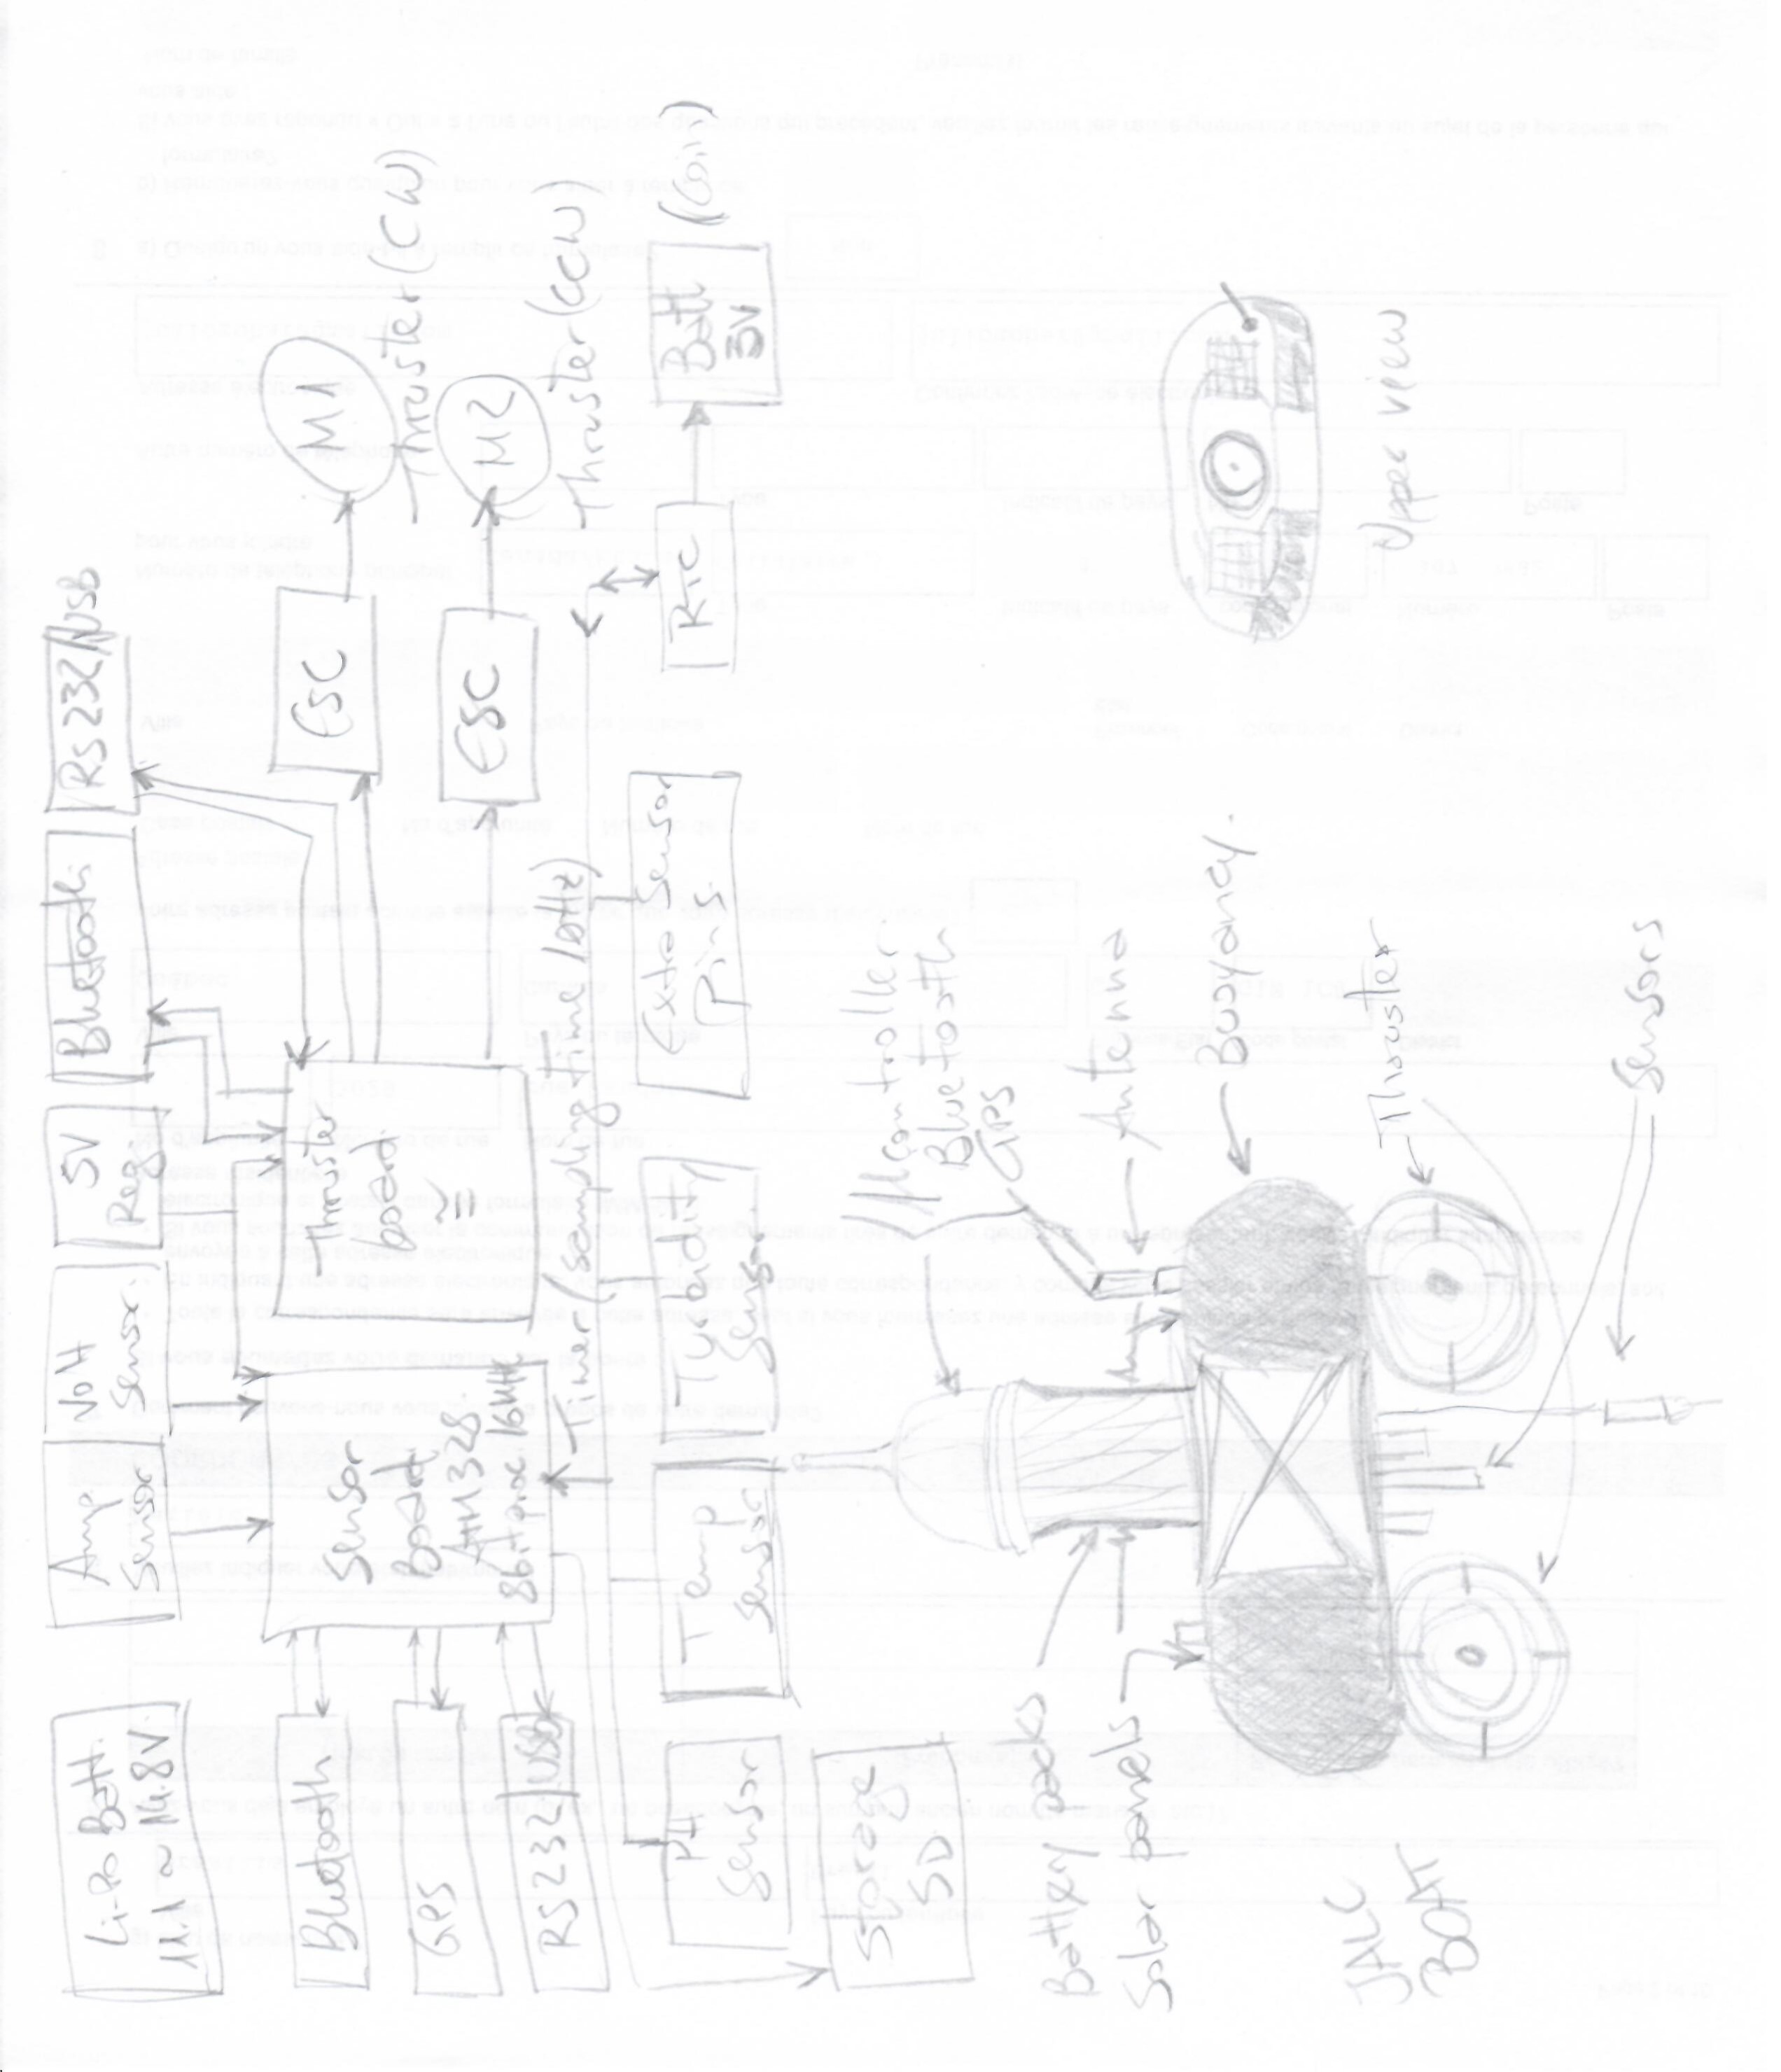 Li-Po Batt.
11.1 ~ 14.8V
Amp
Sensor
Volt
Sensor.
5V
Reg.
Bluetooth
RS232/USB
Bluetooth
GPS
RS232/USB
Sensor
Board
ATM328
8bit proc. 16MHz
Thruster
board
≈
ESC
M1
Thruster (CW)
ESC
M2
Thruster (CCW)
Timer (sampling time 10Hz)
PH
Sensor
Temp
Sensor
Turbidity
Sensor
Extra Sensor
Pins
RTC
Batt
3V
(Coin)
Storage
SD
μcontroller
Bluetooth
GPS
Battery packs
Solar panels
Antenna
Buoyancy.
JALC
BOAT
Thruster
Upper view
Sensors